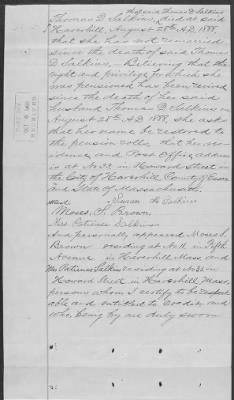 husband Thomas D. Salkins
Thomas D. Salkins, died at said
Haverhill August 28th A.D. 1888,
that she has not remarried
since the death of said Thomas
D. Salkins, - Believing that the
right and privilege for which she
was pensioned has been revived
since the death of her said
husband Thomas D. Salkins
August 28th A.D. 1888, she asks
that her name be restored to
the pension rolls, that her res-
idence and Post Office address
is at No. 33 in Howard Street in
the City of Haverhill County of Essex
and State of Massachusetts.
Susan A. Salkins
Moses S. Brown
Mrs Patience Salkins
And personally appeared Moses S.
Brown residing at No. 11 in Fifth
Avenue in Haverhill Mass and
Mrs Patience Salkins residing at No 33 in
Howard Street in Haverhill Mass,
persons whom I certify to be respect-
able and entitled to credit and
who being by me duly sworn